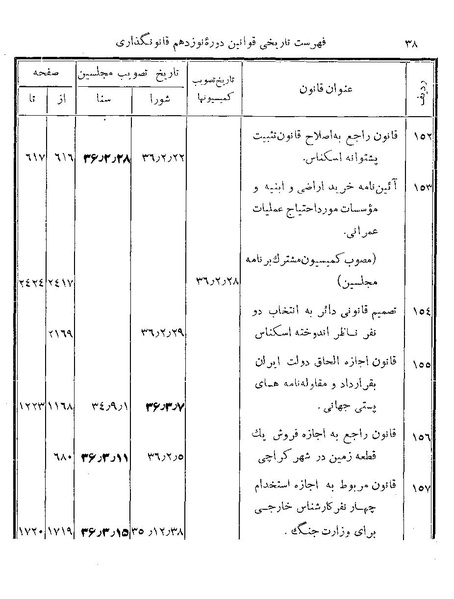 ۳۸ فهرست تاریخی قوانین دورهٔ نوزدهم قانونگذاری
ردیف عنوان قانون تاریخ تصویب کمیسیونها تاریخ تصویب مجلسین صفحه
شورا سنا از تا
۱۵۲ قانون راجع به اصلاح قانون تثبیت
پشتوانه اسکناس. ۳۶٫۲٫۲۲ ۳۶٫۲٫۲۸ ۶۱۶ ۶۱۷
۱۵۳ آئین‌نامه خرید اراضی و ابنیه و
مؤسسات مورد احتیاج عملیات
عمرانی.
(مصوب کمیسیون مشترک برنامه
مجلسین) ۳۶٫۲٫۲۸ ۲۴۱۷ ۲۴۲۴
۱۵۴ تصمیم قانونی دائر به انتخاب دو
نفر ناظر اندوخته اسکناس ۳۶٫۲٫۲۹ ۲۱۶۹
۱۵۵ قانون اجازه الحاق دولت ایران
بقرارداد و مقاوله‌نامه های
پستی جهانی. ۳۶٫۳٫۷ ۳۴٫۹٫۱ ۱۱۶۸ ۱۲۲۳
۱۵۶ قانون راجع به اجازه فروش یک
قطعه زمین در شهر کراچی ۳۶٫۲٫۵ ۳۶٫۳٫۱۱ ۶۸۰
۱۵۷ قانون مربوط به اجازه استخدام
چهار نفر کارشناس خارجی
برای وزارت جنگ. ۳۵٫۱۲٫۳۸ ۳۶٫۳٫۱۵ ۱۷۱۹ ۱۷۲۰